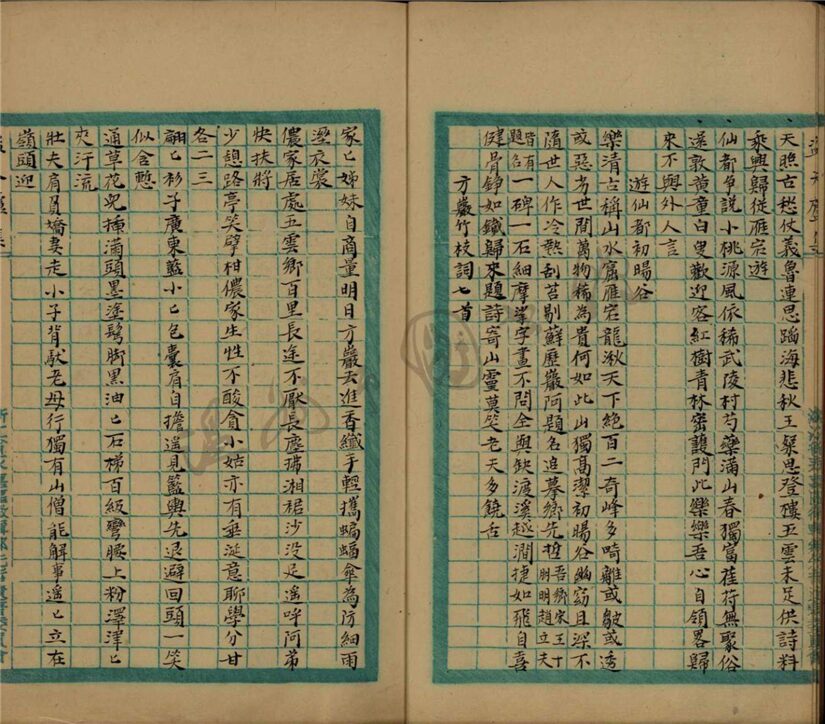 天照古愁仗義魯連思蹈海悲秋王粲思登樓五雲未足供詩料
乘興歸從雁宕遊
仙都爭說小桃源風依稀武陵村芍藥滿山春獨富萑苻無聚俗
還敦黃童白叟歡迎客紅樹青林密護門此樂樂吾心自領畧歸
來不與外人言
遊仙都初暘谷
樂清古稱山水窟雁宕龍湫天下絕百二奇峰多崎雕或皺或透
或惡劣世間萬物稀為貴何如此山獨高潔初暘谷幽窈且深不
隨世人作冷熱刮苔剔蘚歷巖阿題名追摹鄉先哲吾鄉宋王十朋明趙立夫
皆有題名一碑一石細摩挲字畫不問全與缺渡溪越澗捷如飛自喜
健骨錚如鐵歸來題詩寄山靈莫笑老夫多饒舌
方巖竹枝詞七首
家〻姊妹自商量明日方巖去進香纖手輕攜蝙蝠傘為防細雨
溼衣裳
儂家居處五雲鄉百里長途不厭長塵揚湘裙沙没足遥呼阿弟
快扶將
少憩路亭笑擘柑儂家生性不酸貪小姑亦有垂涎意聊學分甘
各二三
翩〻衫子廣東藍小〻包囊肩自擔遥見籃輿先退避回頭一笑
似含慙
通草花兒插滿頭墨塗鬂脚黑油〻石梯百級彎腰上粉澤津〻
夾汗流
壯夫肩負嬌妻走小子背馱老母行獨有山僧能解事遥〻立在
嶺頭迎